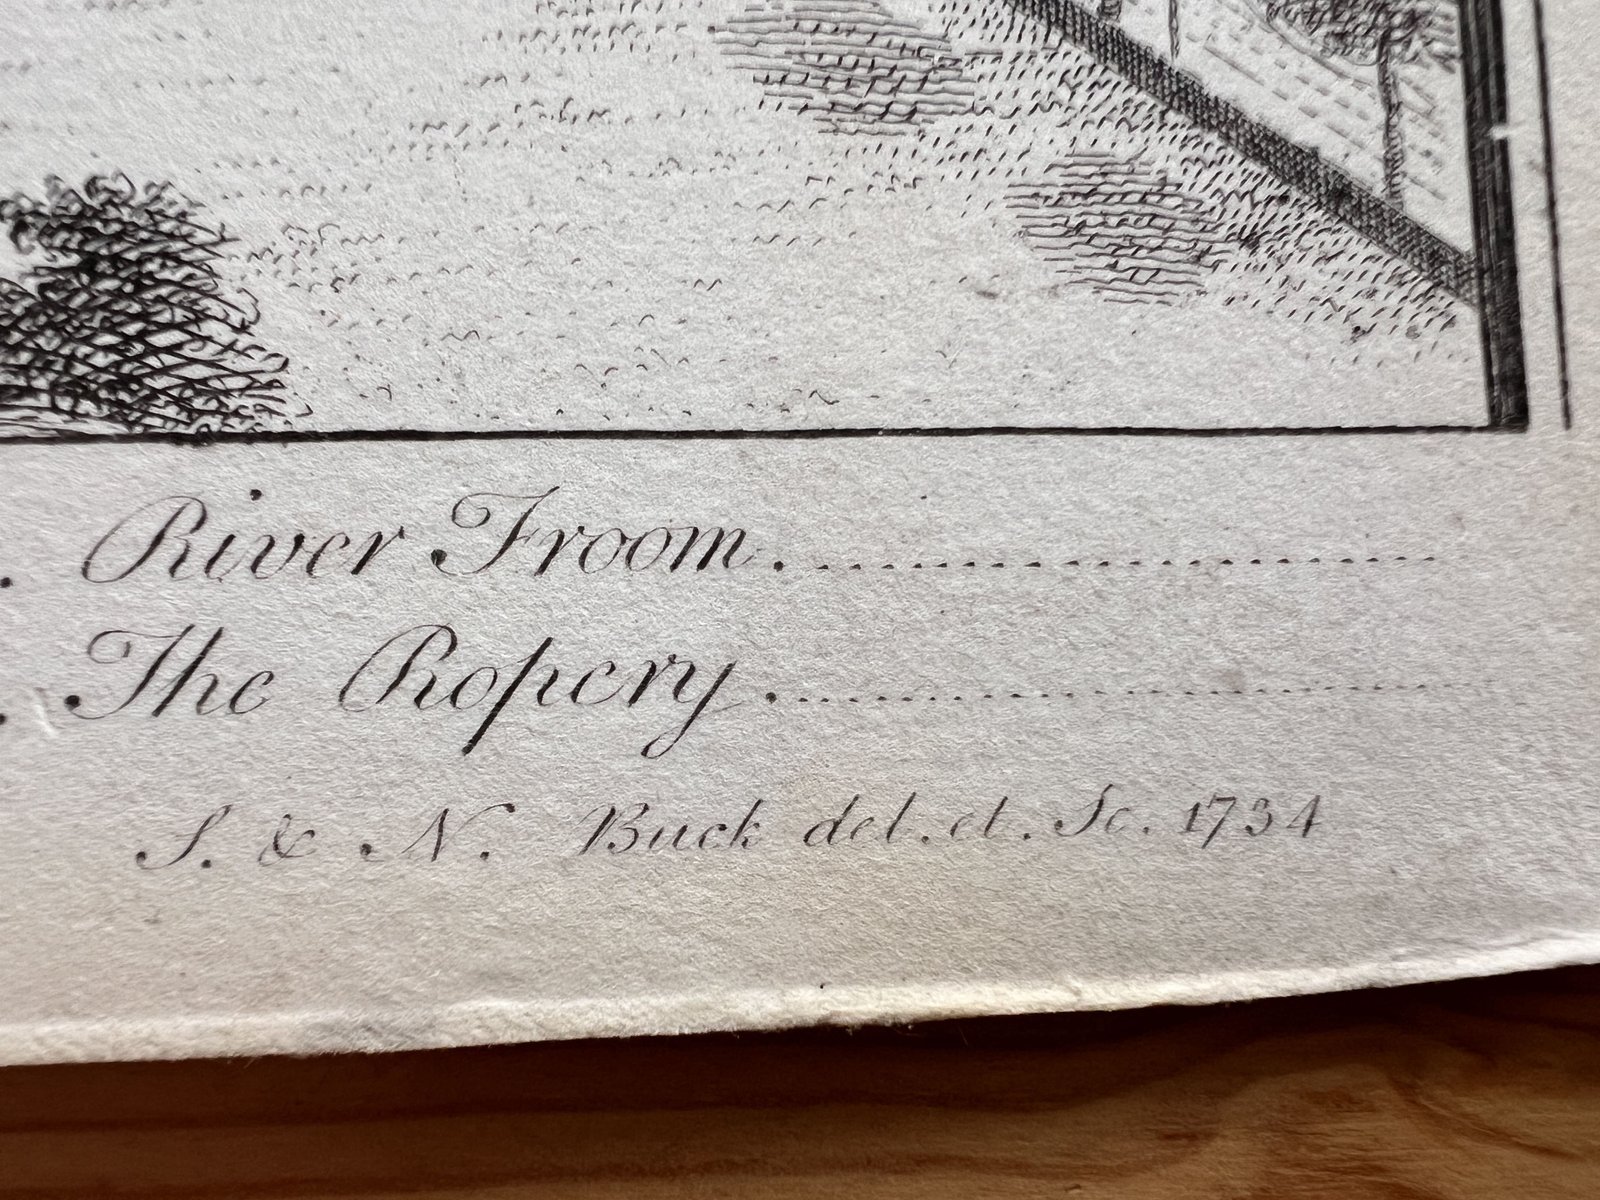 . River Froom. ..............................
. The Ropery. ..............................
S. & N. Buck del. et. Sc. 1734